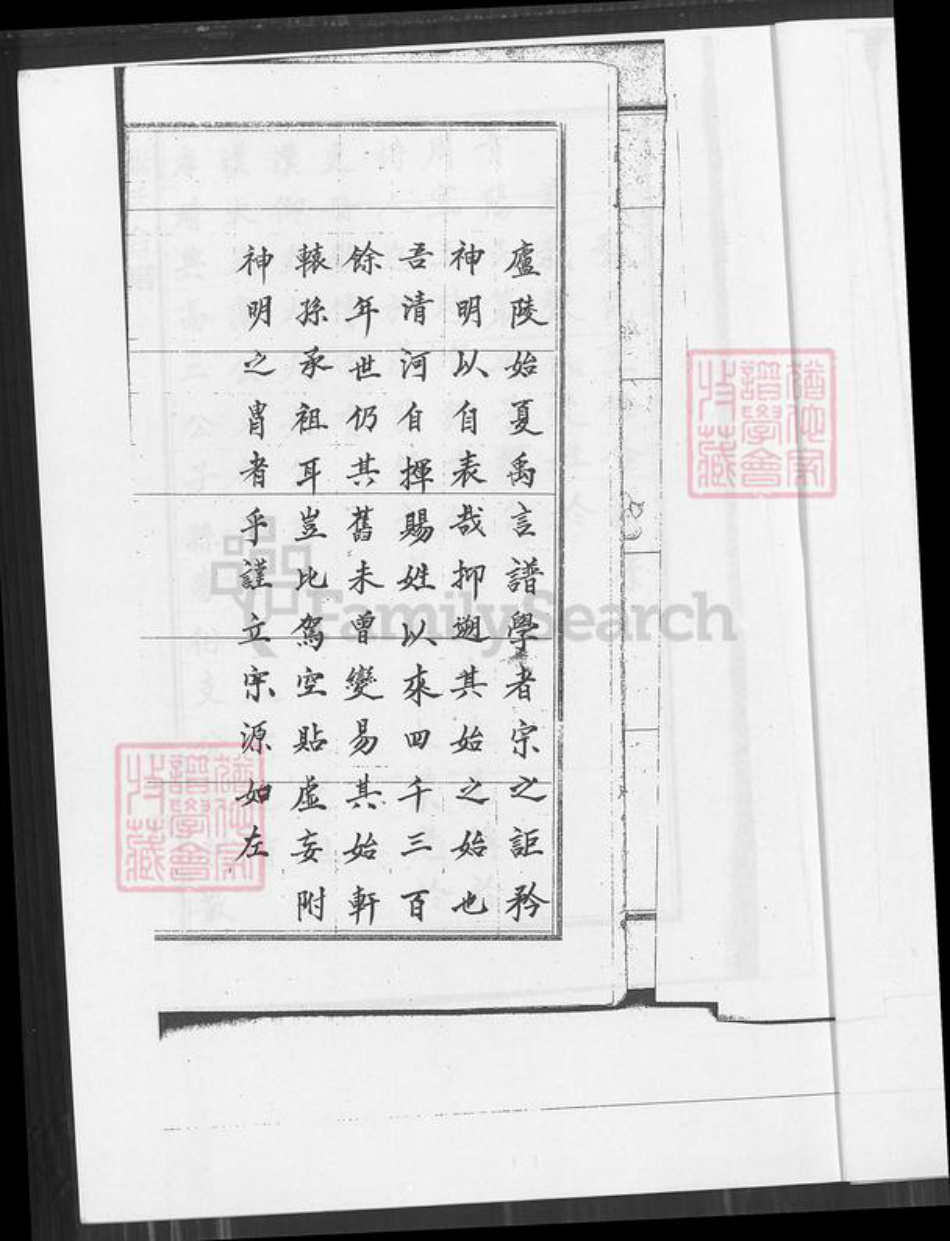 廬陵始夏禹言譜學者宗之詎矜
神明以自表哉抑遡其始之始也
吾清河自揮賜姓以來四千三百
餘年世仍其舊未曾變易其始軒
轅孫承祖耳豈比駕空貼虛妄附
神明之胄者乎謹立宗源如左
FamilySearch